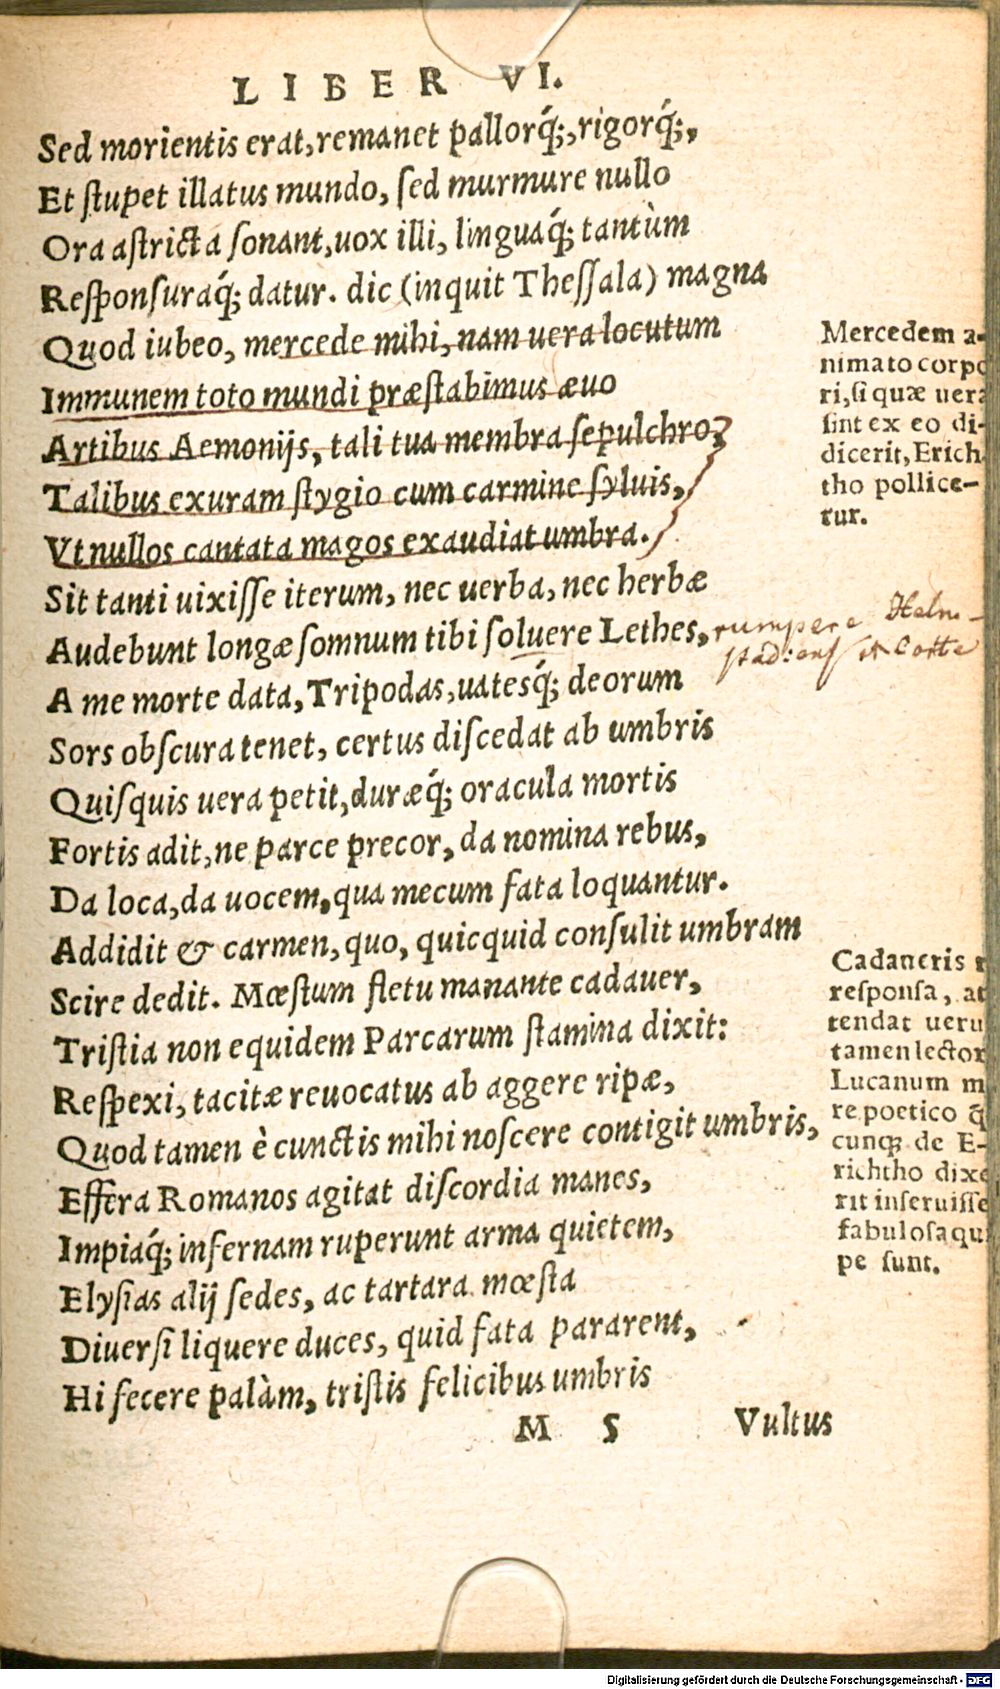 LIBER VI.
Sed morientis erat, remanet pallorq́;, rigorq́;,
Et ſtupet illatus mundo, ſed murmure nullo
Ora aſtricta ſonant, uox illi, linguaq́; tantùm
Reſponſuraq́; datur. dic (inquit Theſſala) magna
Quod iubeo, mercede mihi, nam uera locutum
Immunem toto mundi præſtabimus æuo
Artibus Aemonijs, tali tua membra ſepulchro,
Talibus exuram ſtygio cum carmine ſyluis,
Vt nullos cantata magos exaudiat umbra.
Sit tanti uixiſſe iterum, nec uerba, nec herbæ
Audebunt longæ ſomnum tibi ſoluere Lethes,
A me morte data, Tripodas, uatesq́; deorum
Sors obſcura tenet, certus diſcedat ab umbris
Quiſquis uera petit, duræq́; oracula mortis
Fortis adit, ne parce precor, da nomina rebus,
Da loca, da uocem, qua mecum fata loquantur.
Addidit & carmen, quo, quicquid conſulit umbram
Scire dedit. Mœſtum fletu manante cadauer,
Triſtia non equidem Parcarum ſtamina dixit:
Reſpexi, tacitæ reuocatus ab aggere ripæ,
Quod tamen è cunctis mihi noſcere contigit umbris,
Effera Romanos agitat diſcordia manes,
Impiaq́; infernam ruperunt arma quietem,
Elyſias alij ſedes, ac tartara mœſta
Diuerſi liquere duces, quid fata pararent,
Hi fecere palàm, triſtis felicibus umbris
M 5 Vultus
Mercedem a-
nimato corpo
ri, ſi quæ uera
ſint ex eo di-
dicerit, Erich
tho pollice-
tur.
rumpere Helm-
ſtad: et Corte
Cadaueris
reſponſa, at
tendat ueru
tamen lector
Lucanum m
re poetico q̃
cunq; de E-
richtho dixe
rit inſeruiſſe
fabuloſa qui
pe ſunt.
Digitalisierung gefördert durch die Deutsche Forschungsgemeinschaft - DFG